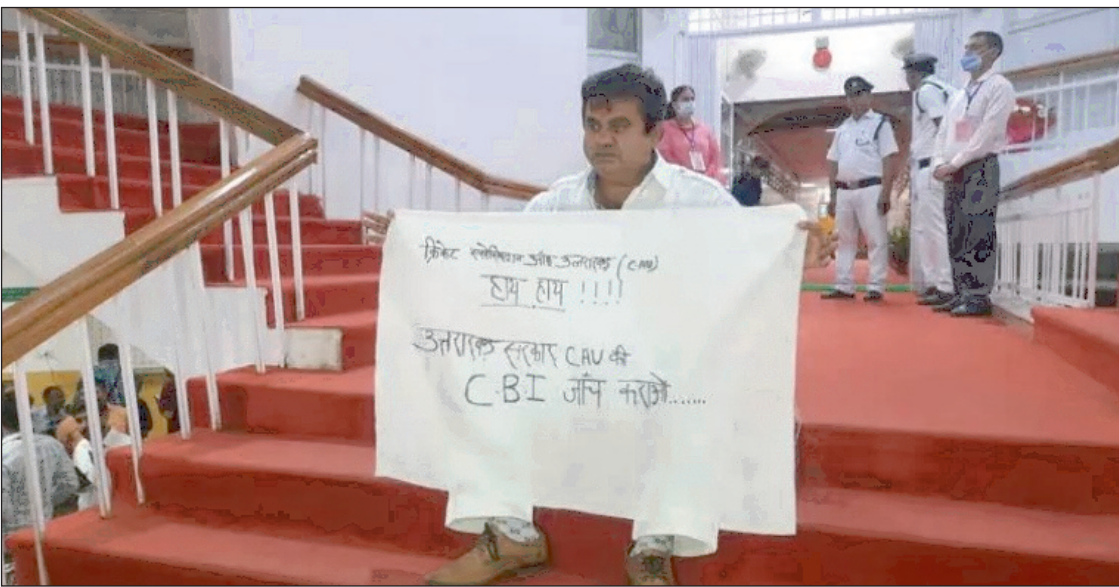 क्रिकेट एसोसिएशन ऑफ उत्तराखण्ड (CAU)
हाय हाय !!!!
उत्तराखण्ड सरकार CAU की
C.B.I जांच कराओ.......